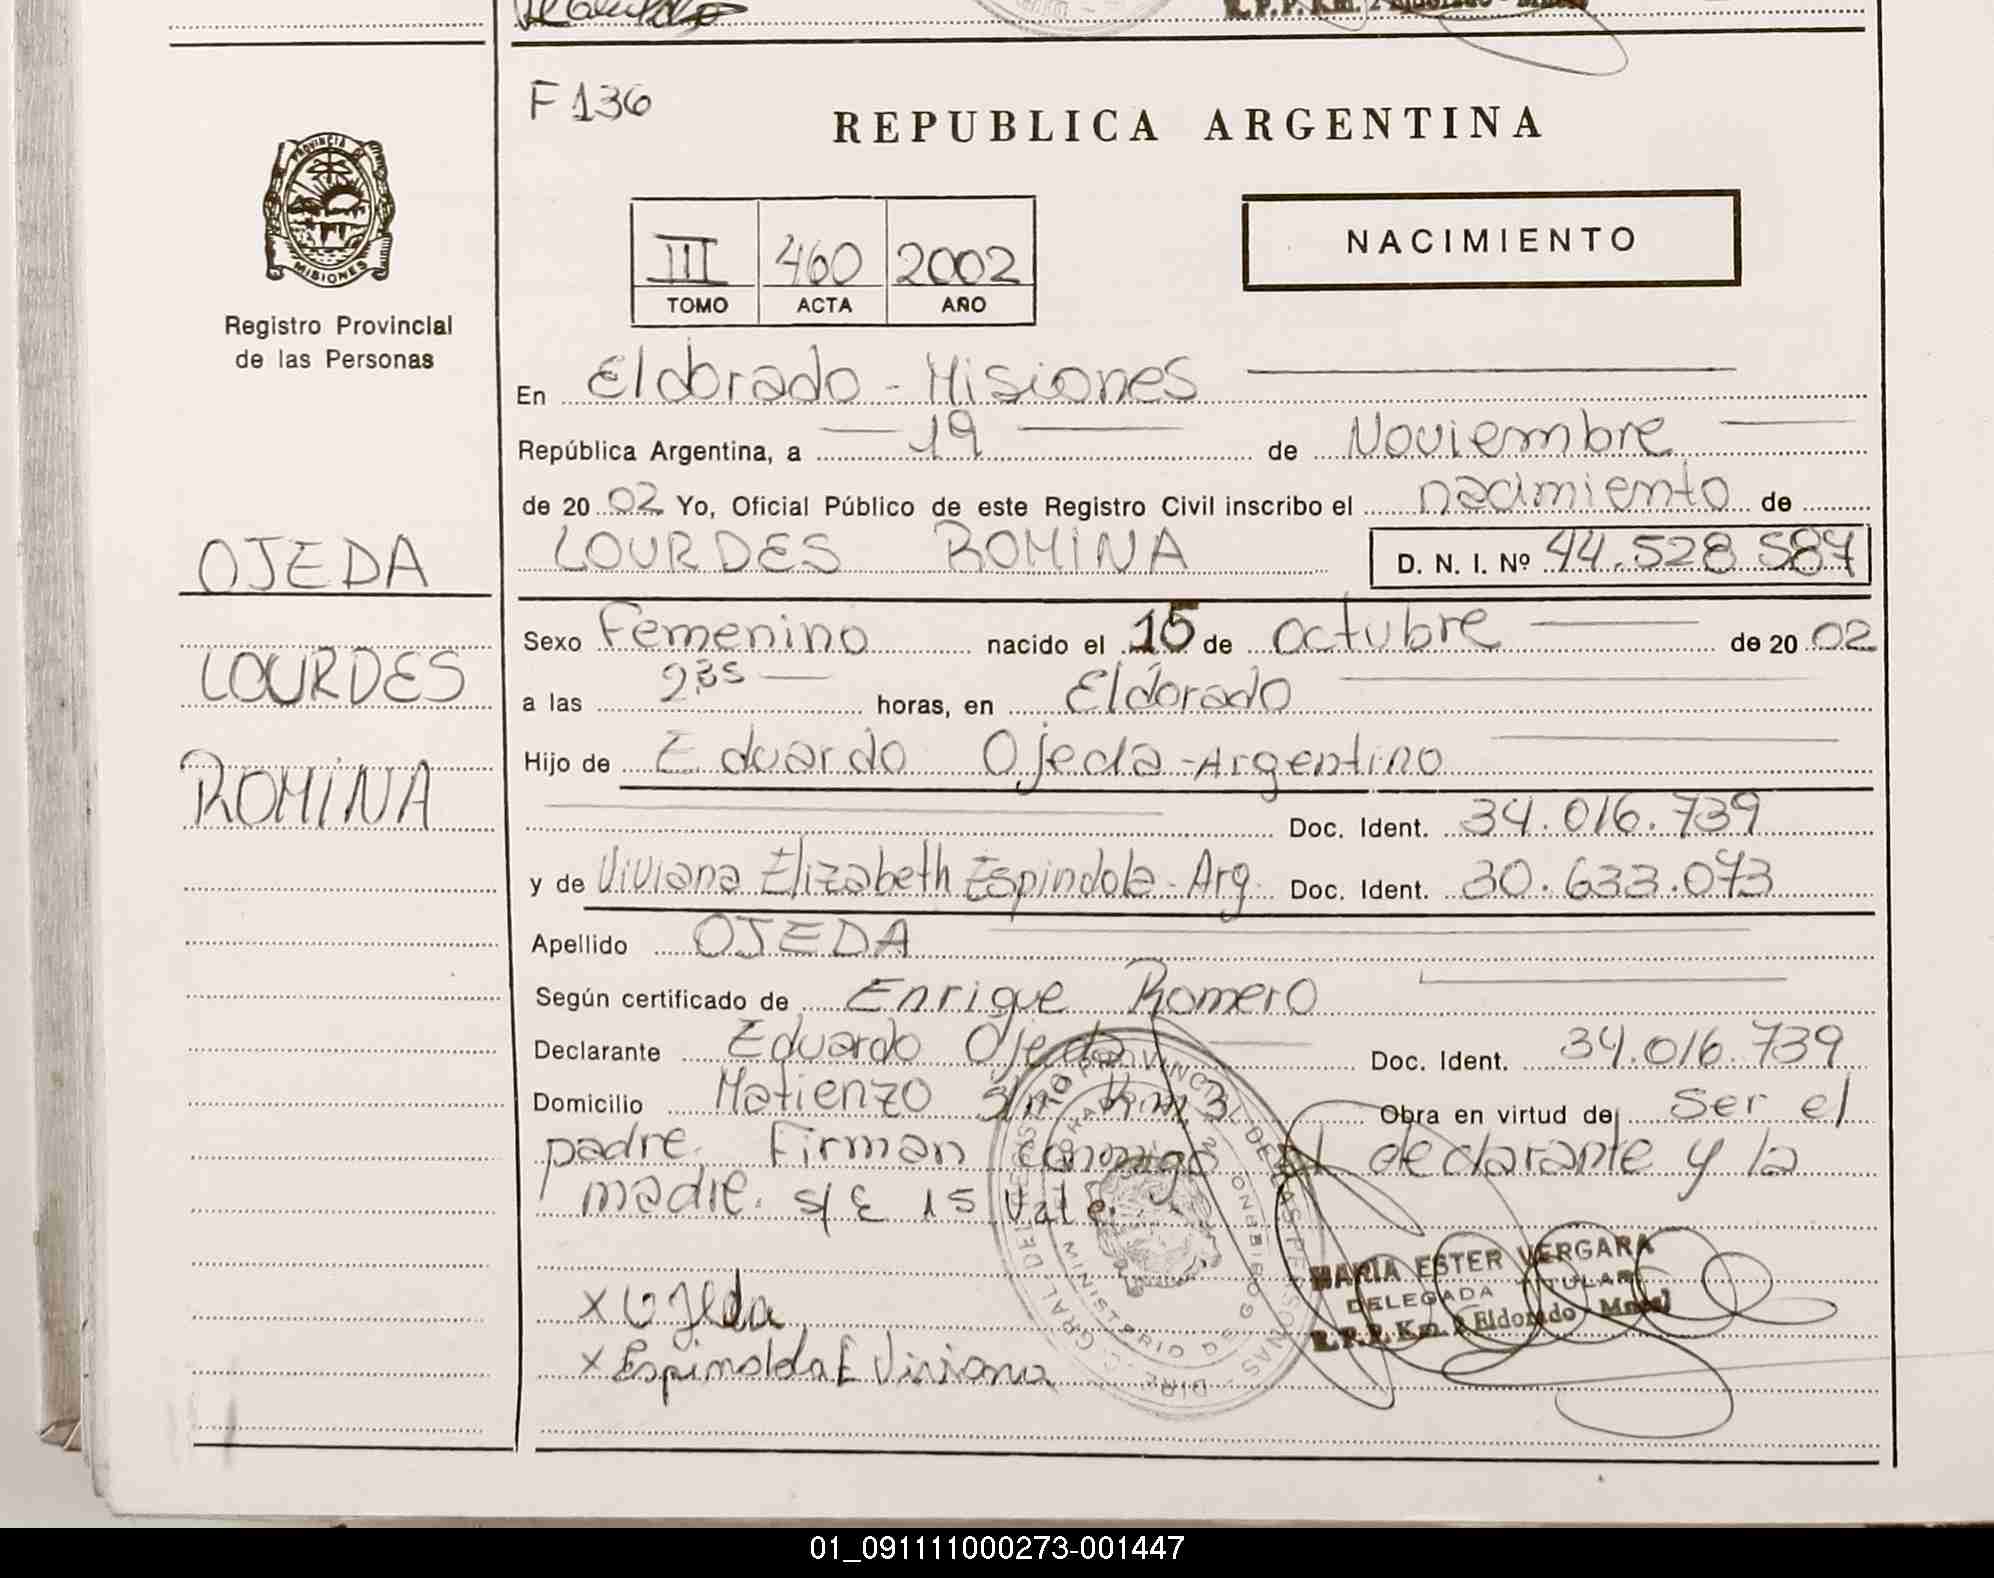 F 136
REPUBLICA ARGENTINA
PROVINCIA DE
MISIONES
Registro Provincial
de las Personas
III 460 2002
TOMO ACTA AÑO
NACIMIENTO
En Eldorado - Misiones
República Argentina, a 19 de Noviembre
de 2002 Yo, Oficial Público de este Registro Civil inscribo el nacimiento de
LOURDES ROMINA D. N. I. Nº 44.528.587
OJEDA
LOURDES
ROMINA
Sexo Femenino nacido el 15 de octubre de 2002
a las 2:35 horas, en Eldorado
Hijo de Eduardo Ojeda - Argentino
Doc. Ident. 34.016.739
y de Viviana Elizabeth Espindola - Arg. Doc. Ident. 30.633.073
Apellido OJEDA
Según certificado de Enrique Romero
Declarante Eduardo Ojeda Doc. Ident. 34.016.739
Domicilio Matienzo s/n Km 3 Obra en virtud de Ser el
padre. Firman conmigo el declarante y la
madre. s/E 15 Vale.
MARIA ESTER VERGARA
DELEGADA TITULAR
R.P.P. Km. 2 Eldorado - Mnes
x Ojeda
x Espindola E Viviana
01_091111000273-001447